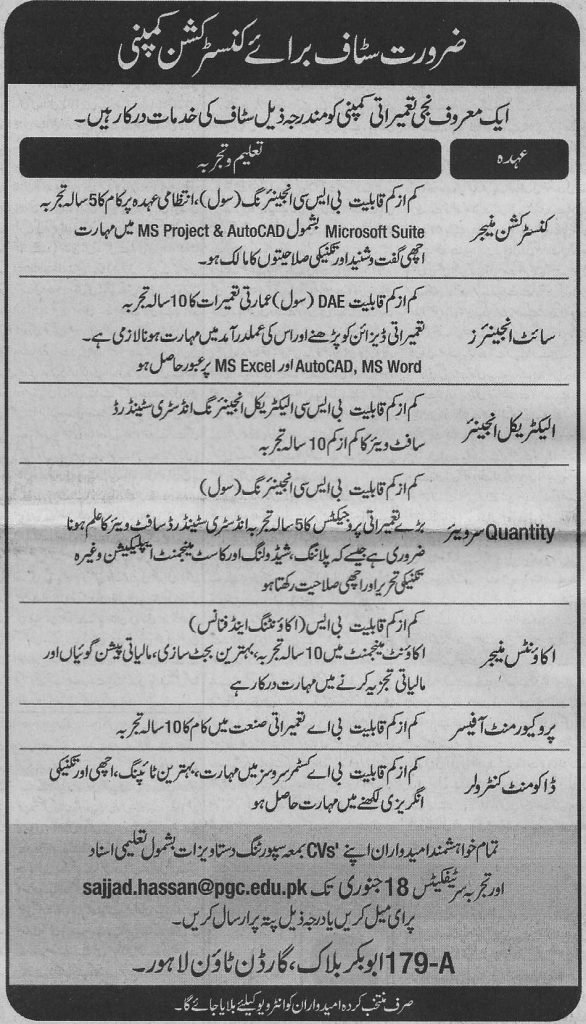 ضرورت سٹاف برائے کنسٹرکشن کمپنی
ایک معروف نجی تعمیراتی کمپنی کو مندرجہ ذیل سٹاف کی خدمات درکار ہیں۔
عہدہ
تعلیم و تجربہ
کنسٹرکشن منیجر
کم از کم قابلیت بی ایس سی انجینئرنگ (سول)، انتظامی عہدہ پر کام کا 5 سالہ تجربہ
Microsoft Suite بشمول MS Project & AutoCAD میں مہارت
اچھی گفت و شنید اور تکنیکی صلاحیتوں کا مالک ہو۔
سائٹ انجینئرز
کم از کم قابلیت DAE (سول) عمارتی تعمیرات کا 10 سالہ تجربہ
تعمیراتی ڈیزائن کو پڑھنے اور اس کی عملدرآمد میں مہارت ہونا لازمی ہے۔
AutoCAD, MS Word اور MS Excel پر عبور حاصل ہو
الیکٹریکل انجینئر
کم از کم قابلیت بی ایس سی الیکٹریکل انجینئرنگ انڈسٹری سٹینڈرڈ
سافٹ ویئر کا کم از کم 10 سالہ تجربہ
Quantity سرویئر
کم از کم قابلیت بی ایس سی انجینئرنگ (سول)
بڑے تعمیراتی پروجیکٹس کا 5 سالہ تجربہ انڈسٹری سٹینڈرڈ سافٹ ویئر کا علم ہونا
ضروری ہے جیسے کہ پلاننگ، شیڈولنگ اور کاسٹ مینجمنٹ ایپلیکیشن وغیرہ
تکنیکی تحریر اور اچھی صلاحیت رکھتا ہو
اکاؤنٹس منیجر
کم از کم قابلیت بی ایس (اکاؤنٹنگ اینڈ فنانس)
اکاؤنٹ مینجمنٹ میں 10 سالہ تجربہ، بہترین بجٹ سازی، مالیاتی پیشن گوئیاں اور
مالیاتی تجزیہ کرنے میں مہارت درکار ہے
پروکیورمنٹ آفیسر
کم از کم قابلیت بی اے تعمیراتی صنعت میں کام کا 10 سالہ تجربہ
ڈاکومنٹ کنٹرولر
کم از کم قابلیت بی اے کسٹمر سروسز میں مہارت، بہترین ٹائپنگ، اچھی اور تکنیکی
انگریزی لکھنے میں مہارت حاصل ہو
تمام خواہشمند امیدواران اپنے CVs' بمعہ سپورٹنگ دستاویزات بشمول تعلیمی اسناد
اور تجربہ سرٹیفکیٹس 18 جنوری تک sajjad.hassan@pgc.edu.pk
پر ای میل کریں یا درجہ ذیل پتہ پر ارسال کریں۔
179-A ابوبکر بلاک، گارڈن ٹاؤن لاہور۔
صرف منتخب کردہ امیدواران کو انٹرویو کیلئے بلایا جائے گا۔